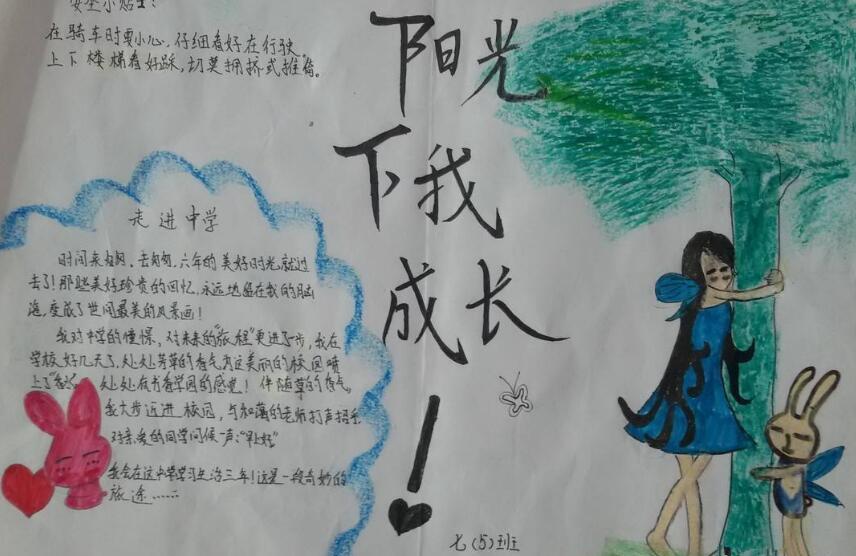 安全小贴士：
在骑车时要小心，仔细看好在行驶。
上下楼梯看好踩，切莫拥挤式推
阳光
下我
成长
！
走进中学
时间来匆匆，去匆匆，六年的美好时光就过
去了！那些美好珍贵的回忆，永远地留在我的脑
海，变成了世间最美的风景画！
我对中学的憧憬，对未来的“旅程”更进了步，我在
学校好几天了，处处芳草的香气为这美丽的校园喷
上了 处处有书香学园的感觉！伴随草的香气。
我大步迈进校园，与和蔼的老师打声招乎
对亲爱的同学问候一声：“早上好”
我会在这中学学习生活三年！这是一段奇妙的
旅途……
七（5）班